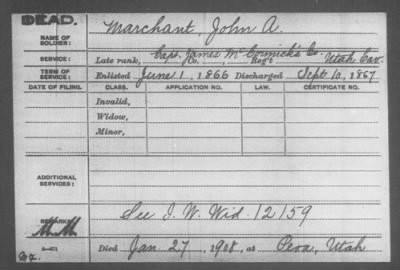 DEAD.
NAME OF SOLDIER: Marchant, John A.
SERVICE: Late rank, Capt. James McCormick's Co. Co., Reg't Utah Cav.
TERM OF SERVICE: Enlisted June 1, 1866 Discharged Sept. 10, 1867
DATE OF FILING. CLASS. APPLICATION NO. LAW. CERTIFICATE NO.
Invalid,
Widow,
Minor,
ADDITIONAL SERVICES:
REMARKS: See I. W. Wid. 12159
Died Jan. 27, 1908, at Peoa, Utah